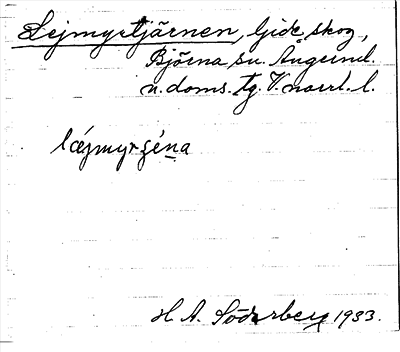 Lejmyrtjärnen, Gide skog,
Björna sn. Ångerml.
n. doms. tg. V. norrl. l.
H. A. Söderberg 1933.